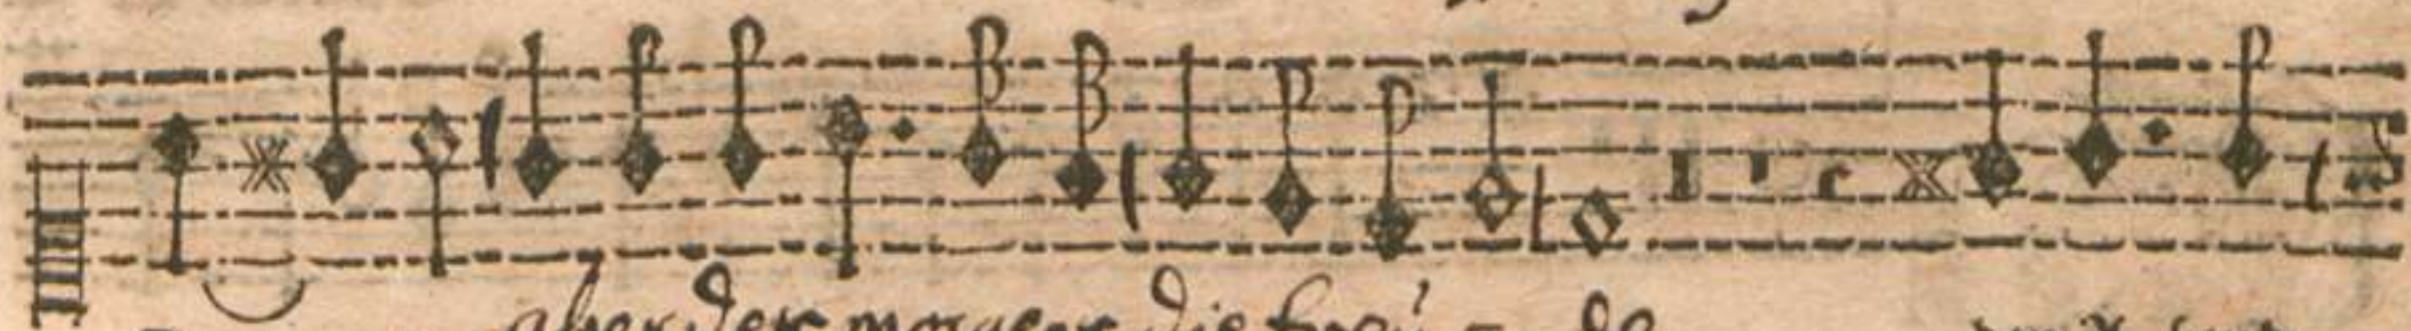 aber der morgen die freü - de